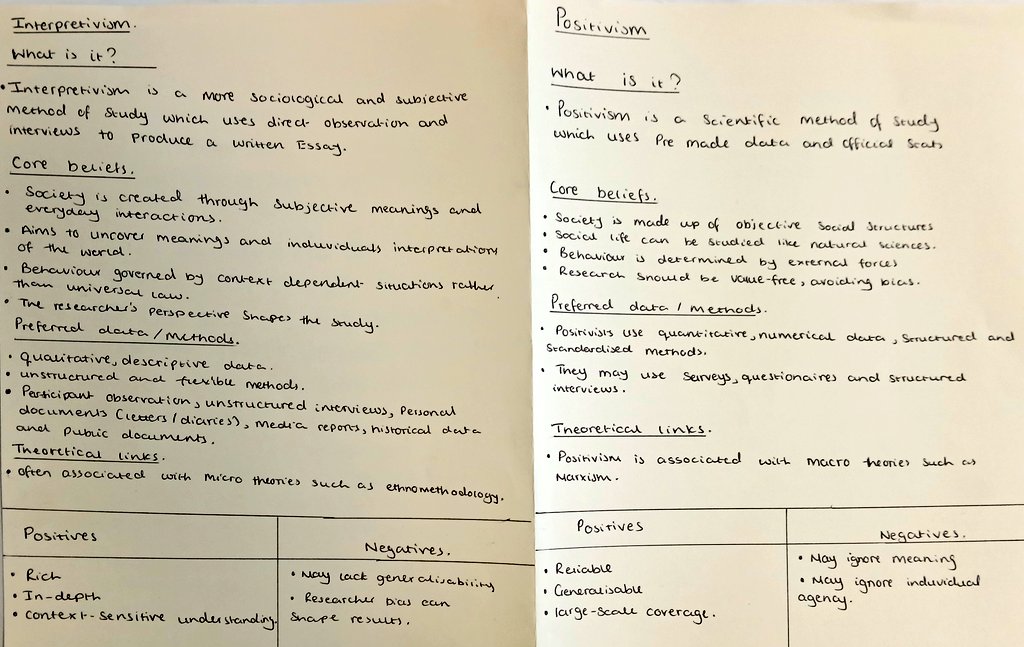 Interpretivism.
What is it?
• Interpretivism is a more sociological and subjective
method of study which uses direct observation and
interviews to produce a written Essay.
Core beliefs.
• Society is created through subjective meanings and
everyday interactions.
• Aims to uncover meanings and individuals interpretations
of the world.
• Behaviour governed by context dependent situations rather
than universal law.
• The researcher's perspective shapes the study.
Preferred data/methods.
• qualitative, descriptive data.
• unstructured and flexible methods.
• Participant observation, unstructured interviews, Personal
documents (letters/diaries), media reports, historical data
and public documents.
Theoretical links.
• often associated with micro theories such as ethnomethodology.
Positives
• Rich
• In-depth
• context-sensitive understanding.
Negatives.
• May lack generalisability
• Researcher bias can
shape results.
Positivism
What is it?
• Positivism is a scientific method of study
which uses Pre made data and official stats
Core beliefs.
• Society is made up of objective social structures
• Social life can be studied like natural sciences.
• Behaviour is determined by external forces
• Research should be value-free, avoiding bias.
Preferred data/methods.
• Positivists use quantitative, numerical data, structured and
standardised methods.
• They may use surveys, questionaires and structured
interviews.
Theoretical links.
• Positivism is associated with macro theories such as
Marxism.
Positives
• Reliable
• Generalisable
• large-scale coverage.
Negatives.
• May ignore meaning
• May ignore individual
agency.